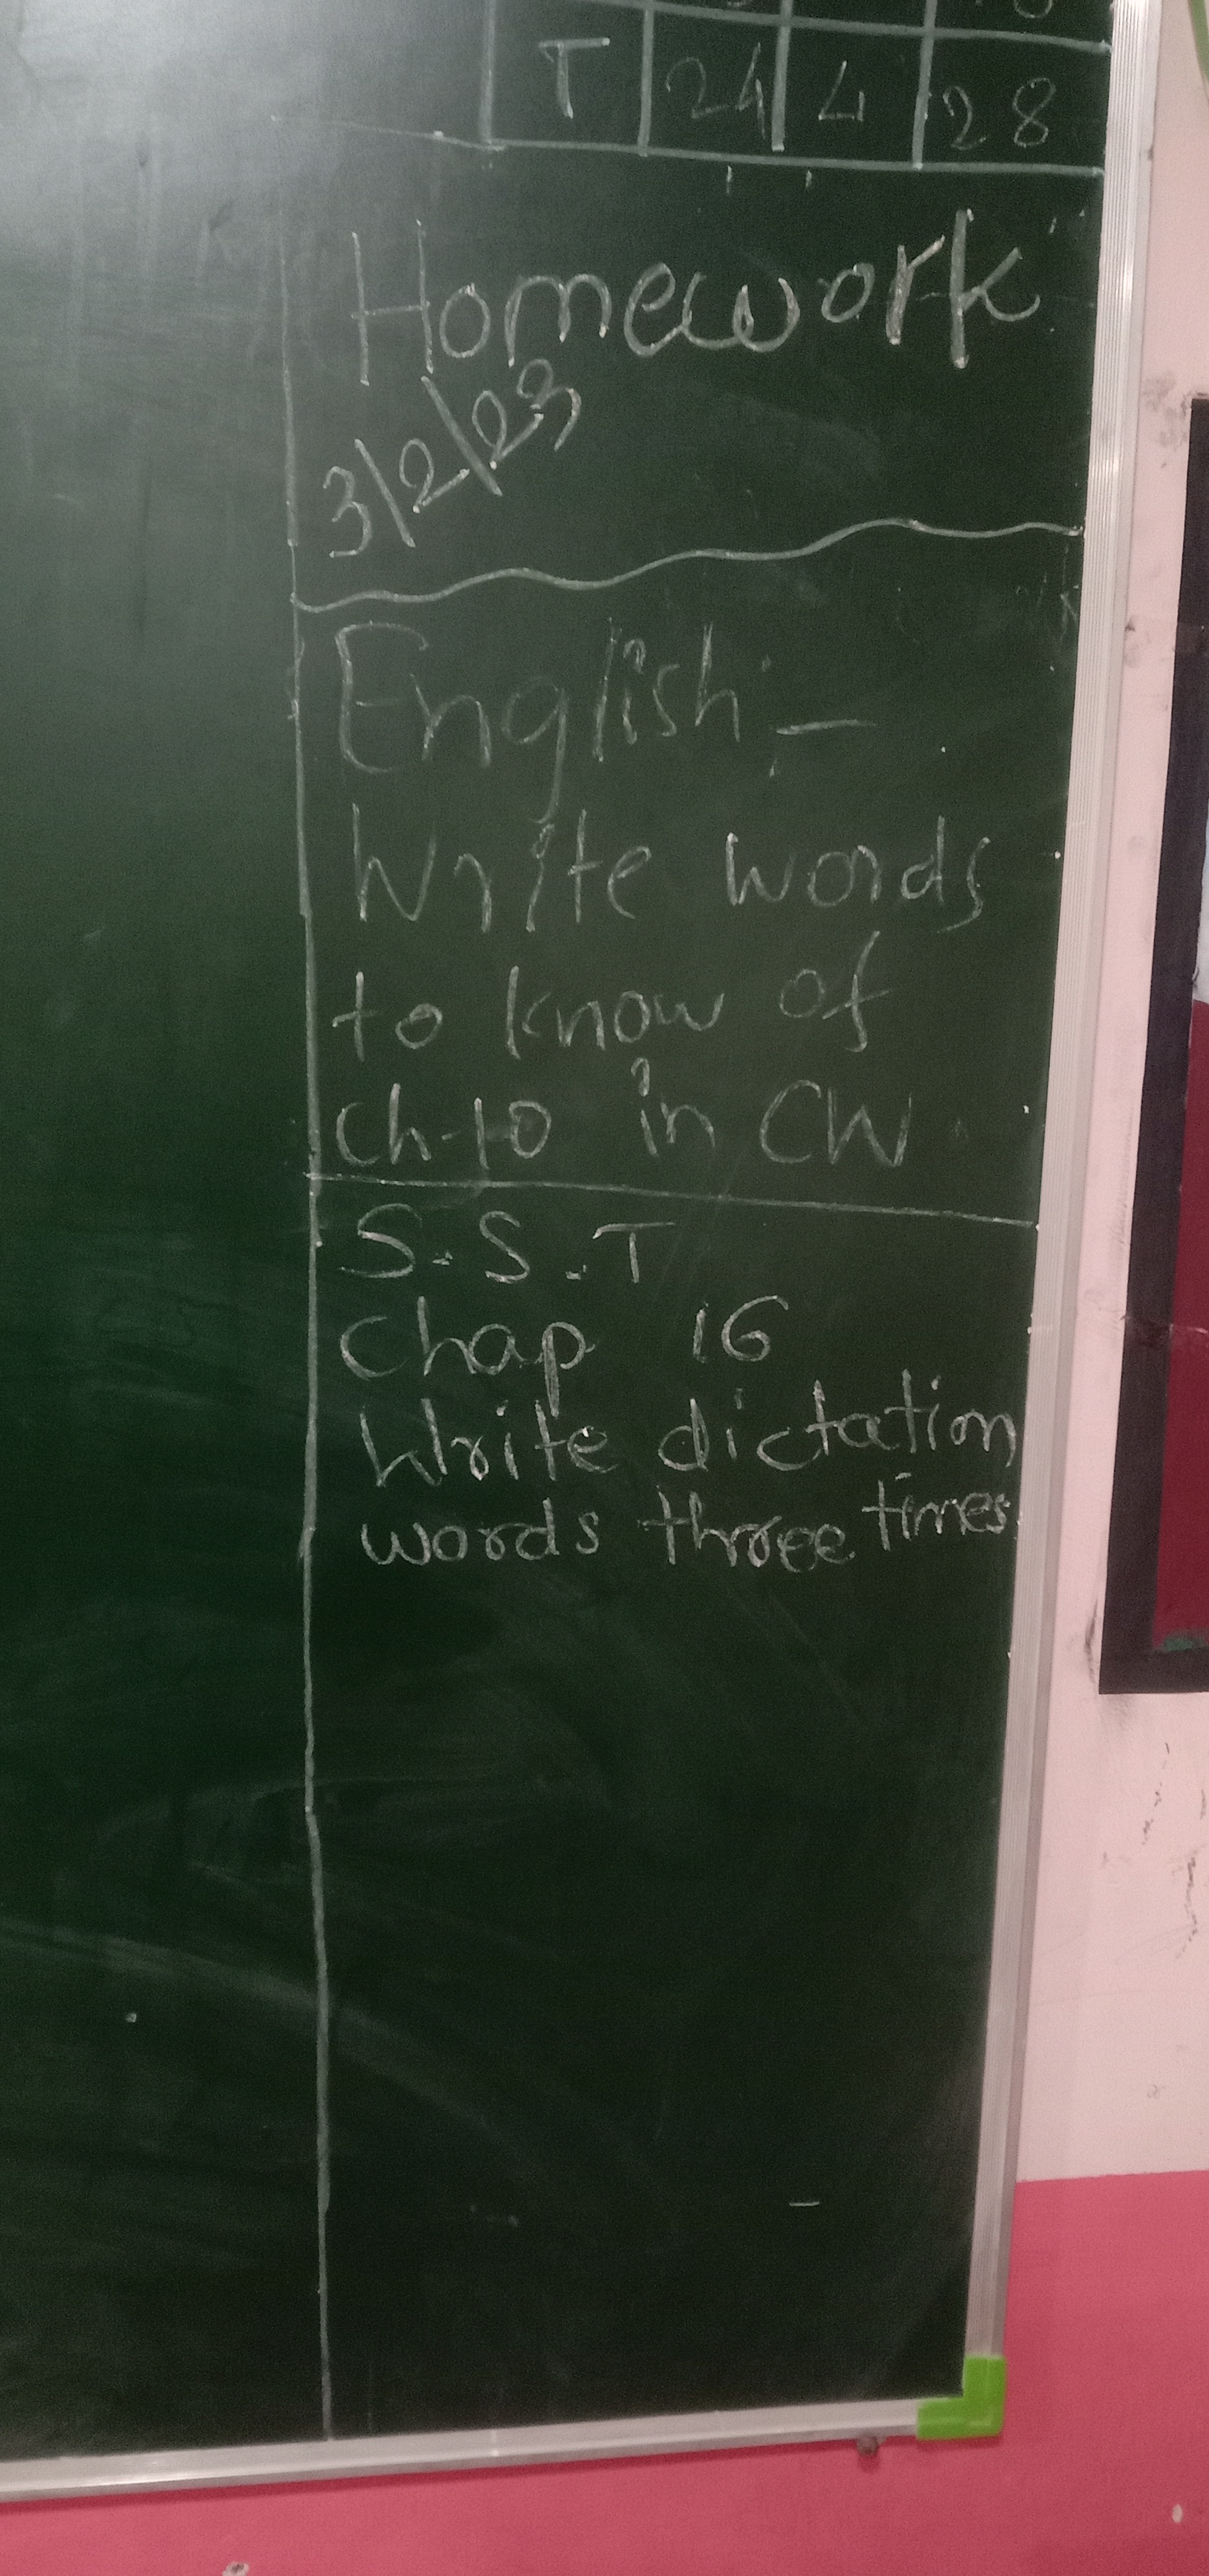 T 24 4 28
Homework
3\2\23
English -
Write words
to know of
ch-10 in CW
S.S.T
Chap 16
Write dictation
words three times